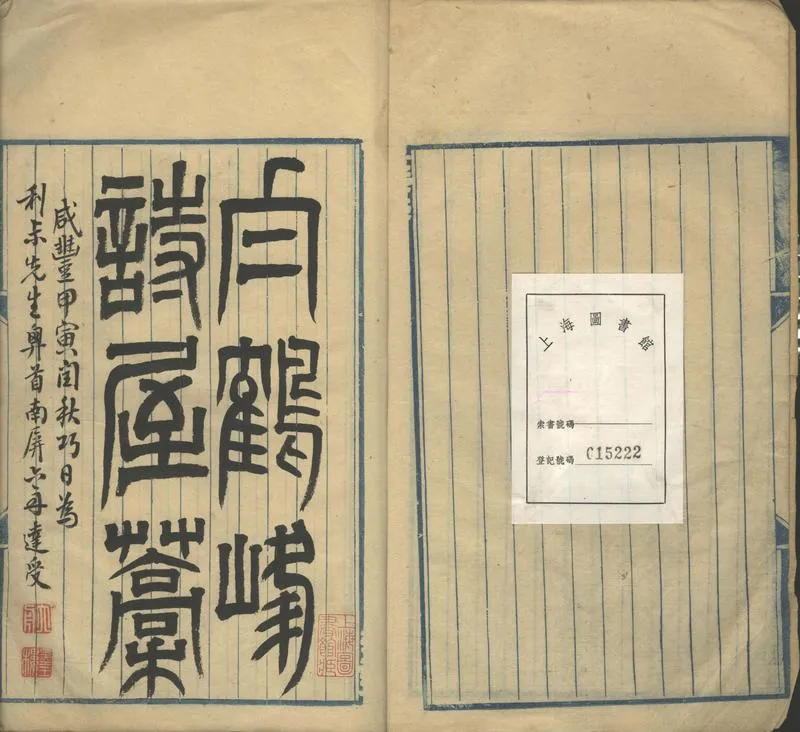 上海圖書館
索書號碼
登記號碼 015222
白鶴峰
詩屋藁
咸豐甲寅閏秋巧日為
利先生首南屏六舟達受
上海圖
書館藏